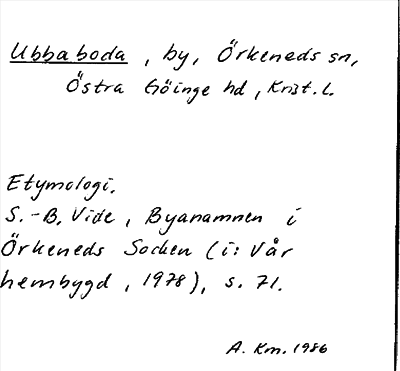 Ubbaboda, by, Örkeneds sn,
Östra Göinge hd, Krist. l.
Etymologi.
S.-B. Vide, Byanamnen i
Örkeneds Socken (i: Vår
hembygd, 1978), s. 71.
A. Km. 1986